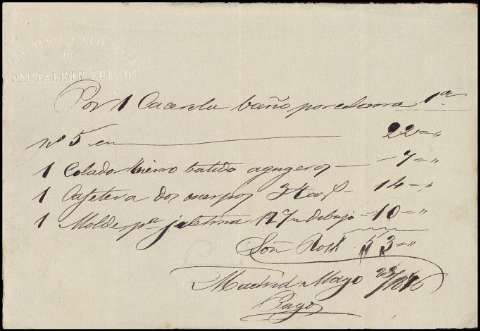 Por 1 Cacerola baño porcelana 1ª
nº 5 en 22 - "
1 Colador hierro batido agugeros - 7 - "
1 Cafetera dos cuerpos - 14 - "
1 Molde pª jeletina Nº 7 dibujo - 10 - "
Son Rs 53 - "
Madrid Mayo
Pagó